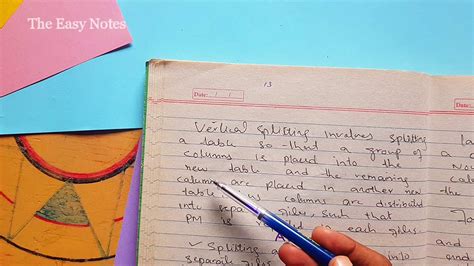 The Easy Notes
13
Date: / /
Vertical Splitting involves splitting
a table so that a group of
columns is placed into the
new table and the remaining
columns are placed in another new
table. columns are distributed
into separate files, such that
PM is in each files.
✓ Splitting a and
separate files